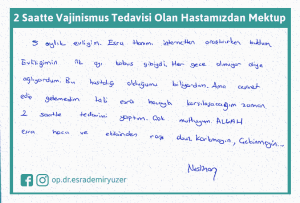 2 Saatte Vajinismus Tedavisi Olan Hastamızdan Mektup
5 aylık evliyim. Esra Hanım internetten araştırırken buldum.
Evliliğimin ilk ayı kabus gibiydi. Her gece olmuyor diye
ağlıyordum. Bu hastalığı olduğunu biliyordum. Ama cesaret
edip gelemedim. Esra hanımla karşılaşacağım zaman
2 saatte tedavimi yaptım. Çok mutluyum. ALLAH
esra hoca ve ekibinden razı olsun. Korkmayın, Çekinmeyin...
Neslihan
op.dr.esrademiryuzer